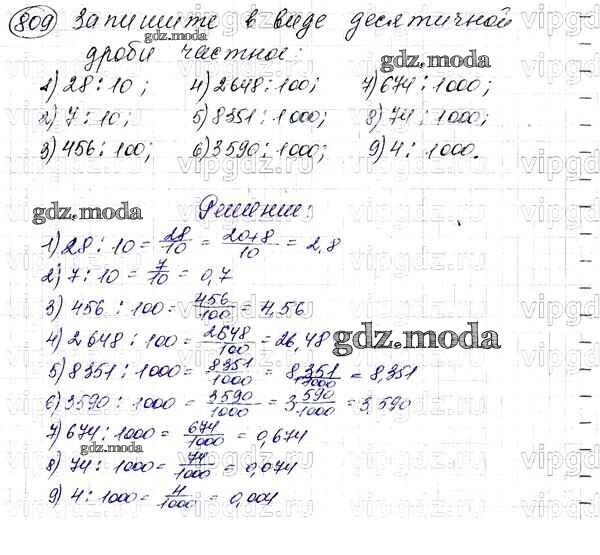 809 Запишите в виде десятичной
дроби частное:
1) 28 : 10; 4) 2648 : 100; 7) 674 : 1000;
2) 7 : 10; 5) 8351 : 1000; 8) 74 : 1000;
3) 456 : 100; 6) 3590 : 1000; 9) 4 : 1000.
gdz.moda
Решение:
1) 28 : 10 = 28/10 = 20+8/10 = 2,8
2) 7 : 10 = 7/10 = 0,7
3) 456 : 100 = 456/100 = 4,56
4) 2648 : 100 = 2648/100 = 26,48
gdz.moda
5) 8351 : 1000 = 8351/1000 = 8 351/1000 = 8,351
6) 3590 : 1000 = 3590/1000 = 3 590/1000 = 3,590
7) 674 : 1000 = 674/1000 = 0,674
8) 74 : 1000 = 74/1000 = 0,074
9) 4 : 1000 = 4/1000 = 0,004